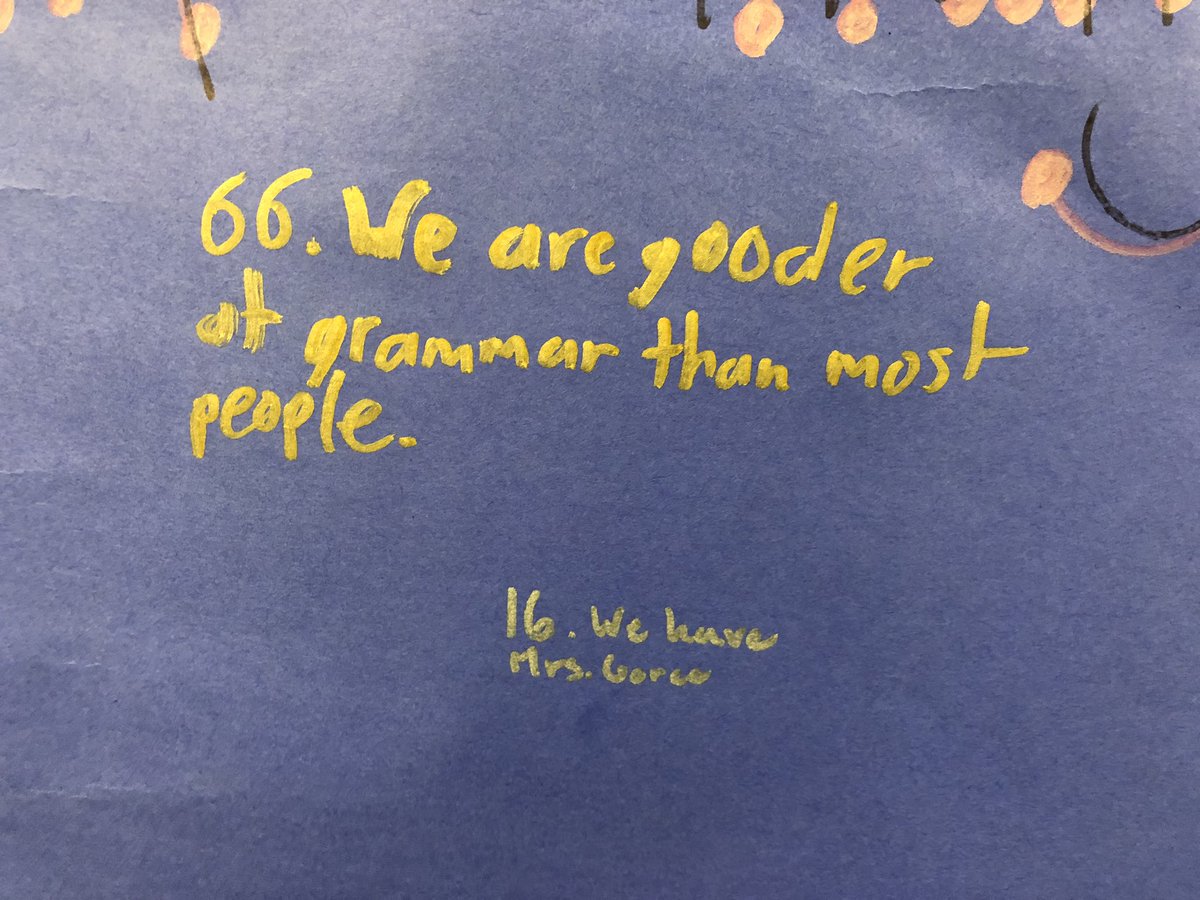 66. We are gooder
at grammar than most
people.
16. We have
Mrs. Gorco